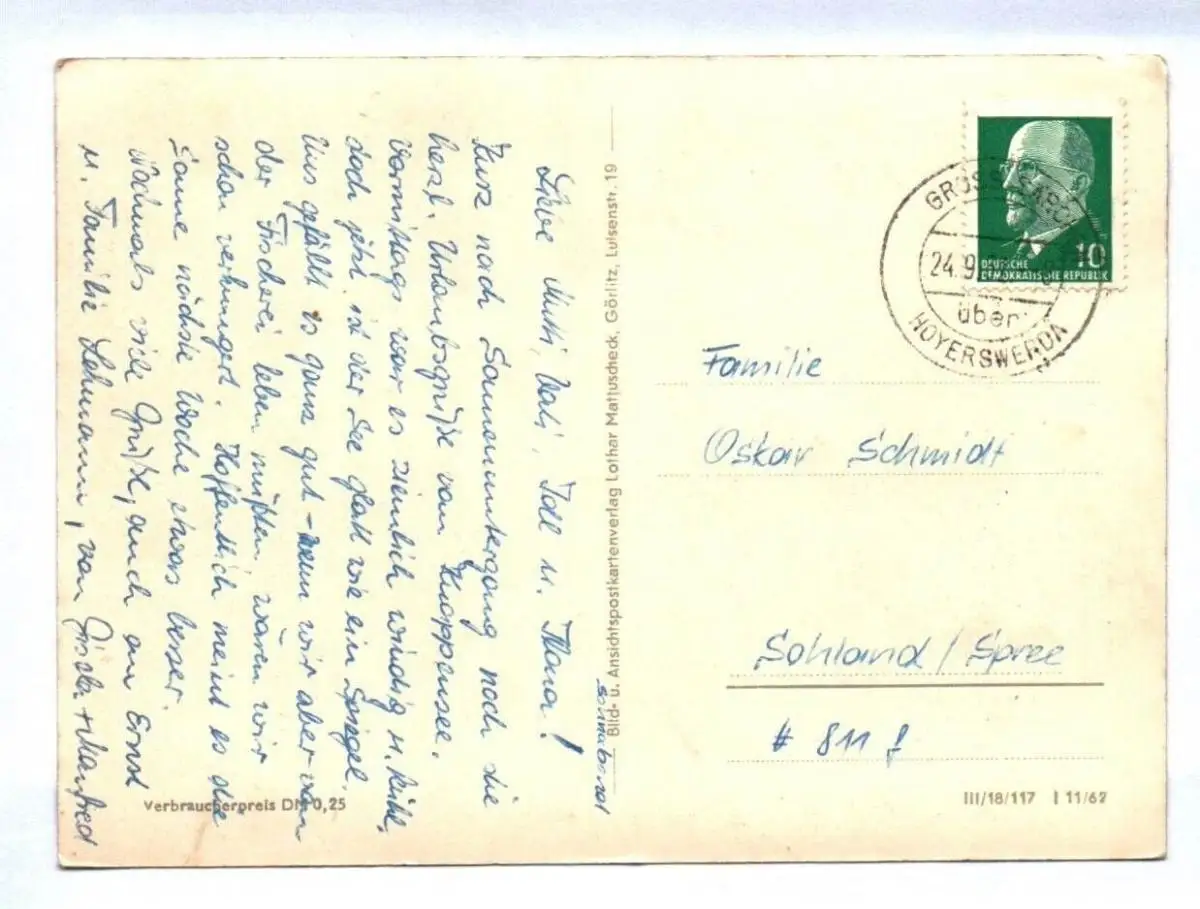 Sonnabend
Liebe Mutti, Vati, u. Klara!
Kurz nach Sonnenuntergang noch die
herzl. Urlaubsgrüße vom Knappensee.
Vormittags war es ziemlich windig u. kühl,
doch jetzt ist der See glatt wie ein Spiegel.
Uns gefällt es ganz gut – wenn wir aber von
der Fischerei leben müßten, wären wir
schon verhungert. Hoffentlich meint es die
Sonne nächste Woche etwas besser.
Nochmals viele Grüße, auch an Ernst
u. Familie Lehmann, von Gisela + Manfred
Verbraucherpreis DM 0,25
Bild- u. Ansichtspostkartenverlag Lothar Mattuscheck, Görlitz, Luisenstr. 19
10
DEUTSCHE
DEMOKRATISCHE REPUBLIK
GROSS SÄRCHEN
24.9.
über
HOYERSWERDA
Familie
Oskar Schmidt
Sohland / Spree
# 811 f
III/18/117 I 11/62